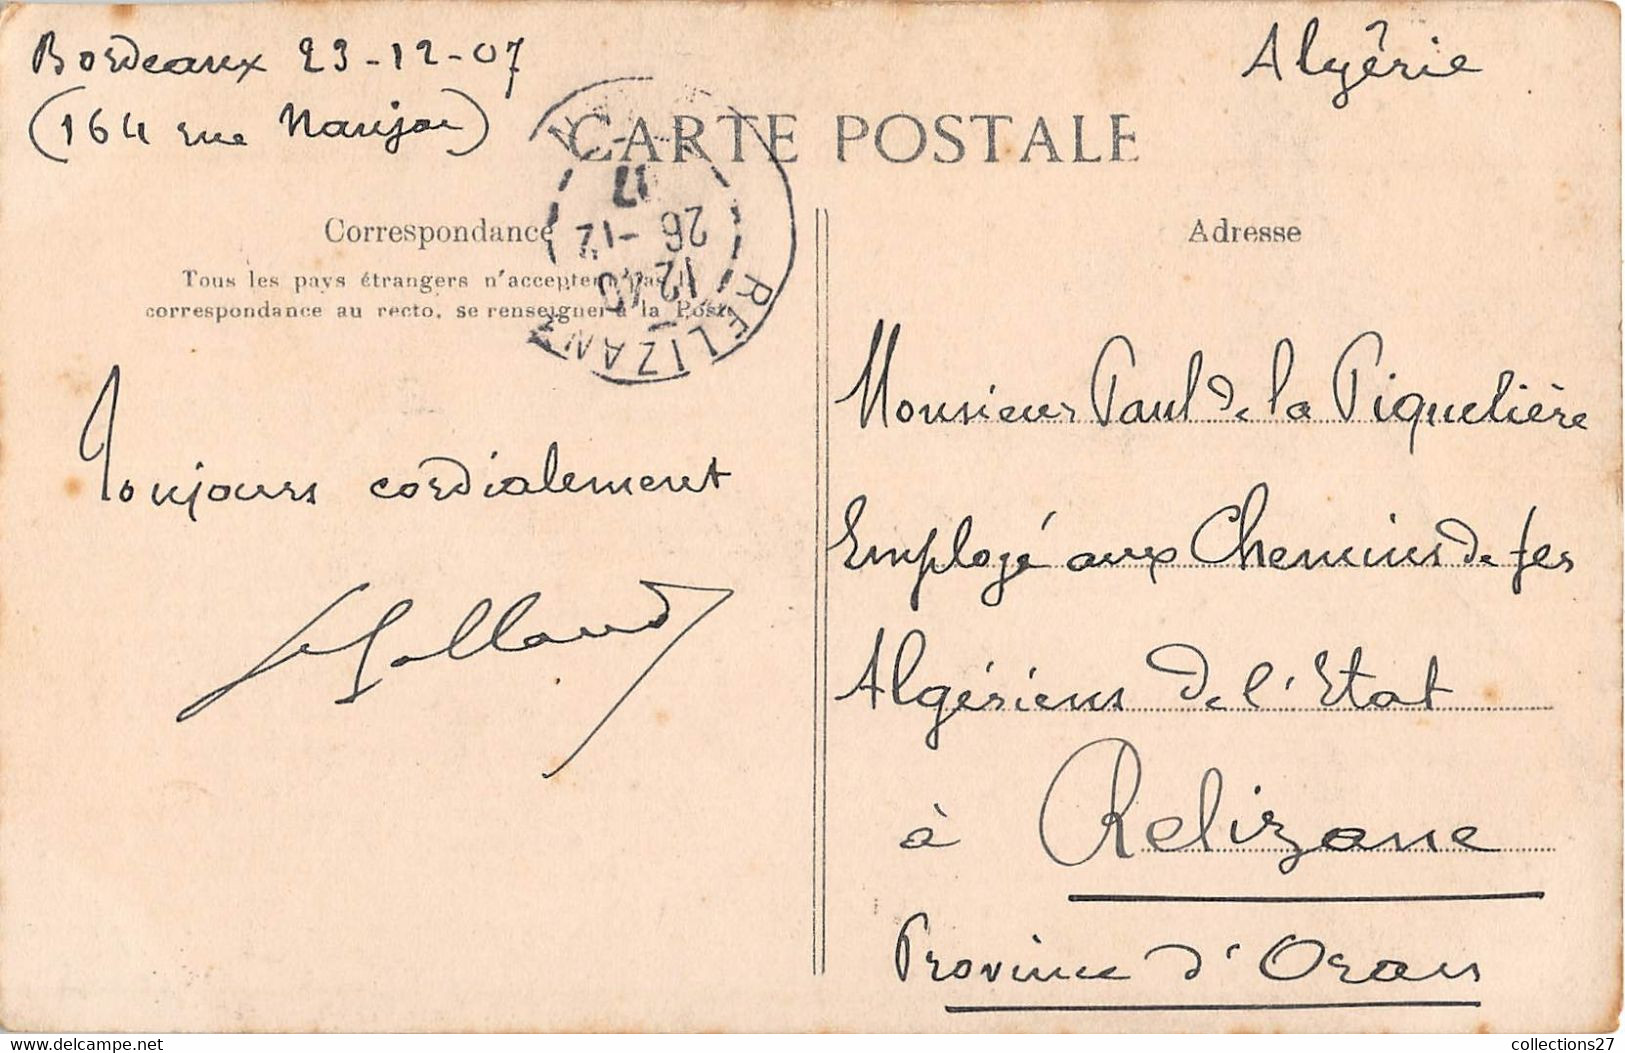 Bordeaux 23-12-07
(164 rue Naujac)
Algérie
CARTE POSTALE
Correspondance
Tous les pays étrangers n'acceptent pas la
correspondance au recto, se renseigner à la Poste
RELIZANE
17
26 -12
12 40
ORAN
Toujours cordialement
Adresse
Monsieur Paul de la Piquelière
Employé aux Chemins de fer
Algériens de l'Etat
à Relizane
Province d'Oran
delcampe.net
collections27